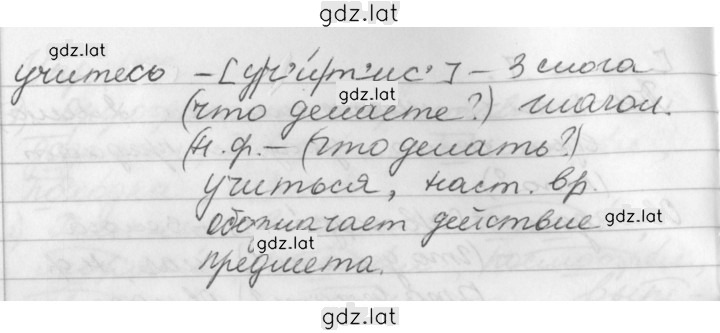 gdz.lat
gdz.lat
учитесь – [уч'ит'ис'] – 3 слога
gdz.lat
(что делаете?) глагол.
(н.ф. – (что делать?)
учиться, наст. вр.
обозначает действие
gdz.lat
предмета.
gdz.lat